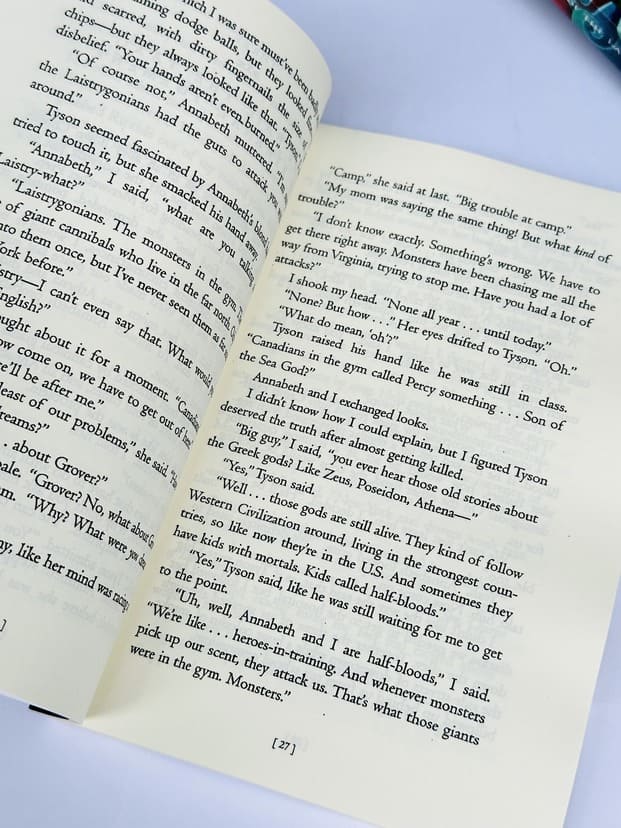 I was sure must've been
dodge balls, but they looked
scarred, with dirty fingernails the size of
chips—but they always looked like that. "Tyson,"
disbelief. "Your hands aren't even burned."
"Of course not," Annabeth muttered. "I'm
the Laistrygonians had the guts to attack you
around."
Tyson seemed fascinated by Annabeth's blond
tried to touch it, but she smacked his hand away.
"Annabeth," I said, "what are you talking
Laistry-what?"
"Laistrygonians. The monsters in the gym.
of giant cannibals who live in the far north.
into them once, but I've never seen them as far
York before."
stry—I can't even say that. What would
English?"
ought about it for a moment. "Canadians
ow come on, we have to get out of here
e'll be after me."
least of our problems," she said.
dreams?"
. . about Grover?"
ale. "Grover? No, what about
m. "Why? What were you
y, like her mind was racing
]
"Camp," she said at last. "Big trouble at camp."
"My mom was saying the same thing! But what kind of
trouble?"
"I don't know exactly. Something's wrong. We have to
get there right away. Monsters have been chasing me all the
way from Virginia, trying to stop me. Have you had a lot of
attacks?"
I shook my head. "None all year . . . until today."
"None? But how . . ." Her eyes drifted to Tyson. "Oh."
"What do mean, 'oh'?"
Tyson raised his hand like he was still in class.
"Canadians in the gym called Percy something . . . Son of
the Sea God?"
Annabeth and I exchanged looks.
I didn't know how I could explain, but I figured Tyson
deserved the truth after almost getting killed.
"Big guy," I said, "you ever hear those old stories about
the Greek gods? Like Zeus, Poseidon, Athena—"
"Yes," Tyson said.
"Well . . . those gods are still alive. They kind of follow
Western Civilization around, living in the strongest coun-
tries, so like now they're in the U.S. And sometimes they
have kids with mortals. Kids called half-bloods."
"Yes," Tyson said, like he was still waiting for me to get
to the point.
"Uh, well, Annabeth and I are half-bloods," I said.
"We're like . . . heroes-in-training. And whenever monsters
pick up our scent, they attack us. That's what those giants
were in the gym. Monsters."
[ 27 ]